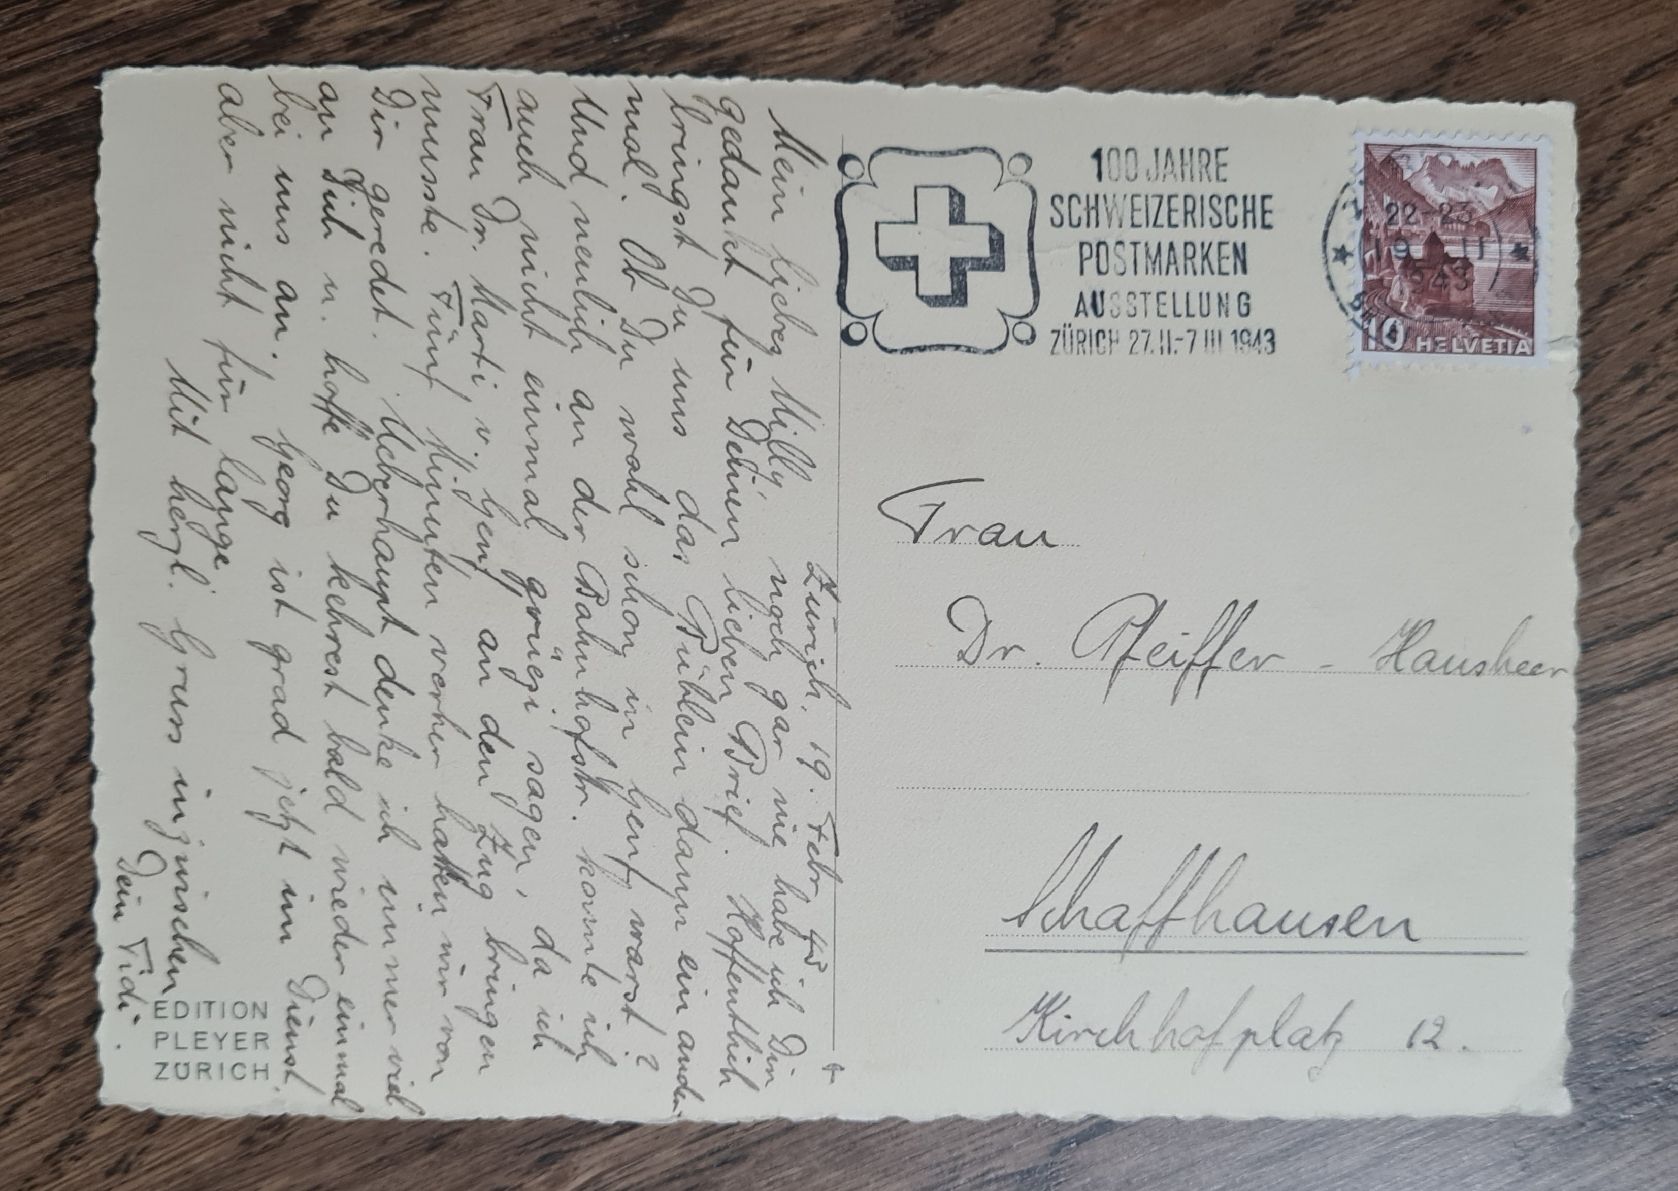 Zürich, 19. Febr. 43
Mein liebes Milly, noch gar nie habe ich Dir
gedankt für Deinen lieben Brief. Hoffentlich
bringst Du uns das Büblein dann ein ander-
mal. Ob Du wohl schon in Genf warst?
Und neulich an der Bahnhofstr. konnte ich
auch nicht einmal grüezi sagen, da ich
Frau Dr. Marti v. Genf an den Zug bringen
musste. Fünf Minuten vorher hatten wir von
Dir geredet. Ueberhaupt denke ich immer viel
an Dich u. hoffe Du kehrest bald wieder einmal
bei uns an. Georg ist grad jetzt im Dienst,
aber nicht für lange.
Mit herzl. Gruss inzwischen
Dein Fidi.
EDITION
PLEYER
ZÜRICH
100 JAHRE
SCHWEIZERISCHE
POSTMARKEN
AUSSTELLUNG
ZÜRICH 27.II.-7 III 1943
22-23
19 II
1943
10 HELVETIA
Frau
Dr. Pfeiffer - Hausheer
Schaffhausen
Kirchhofplatz 12.